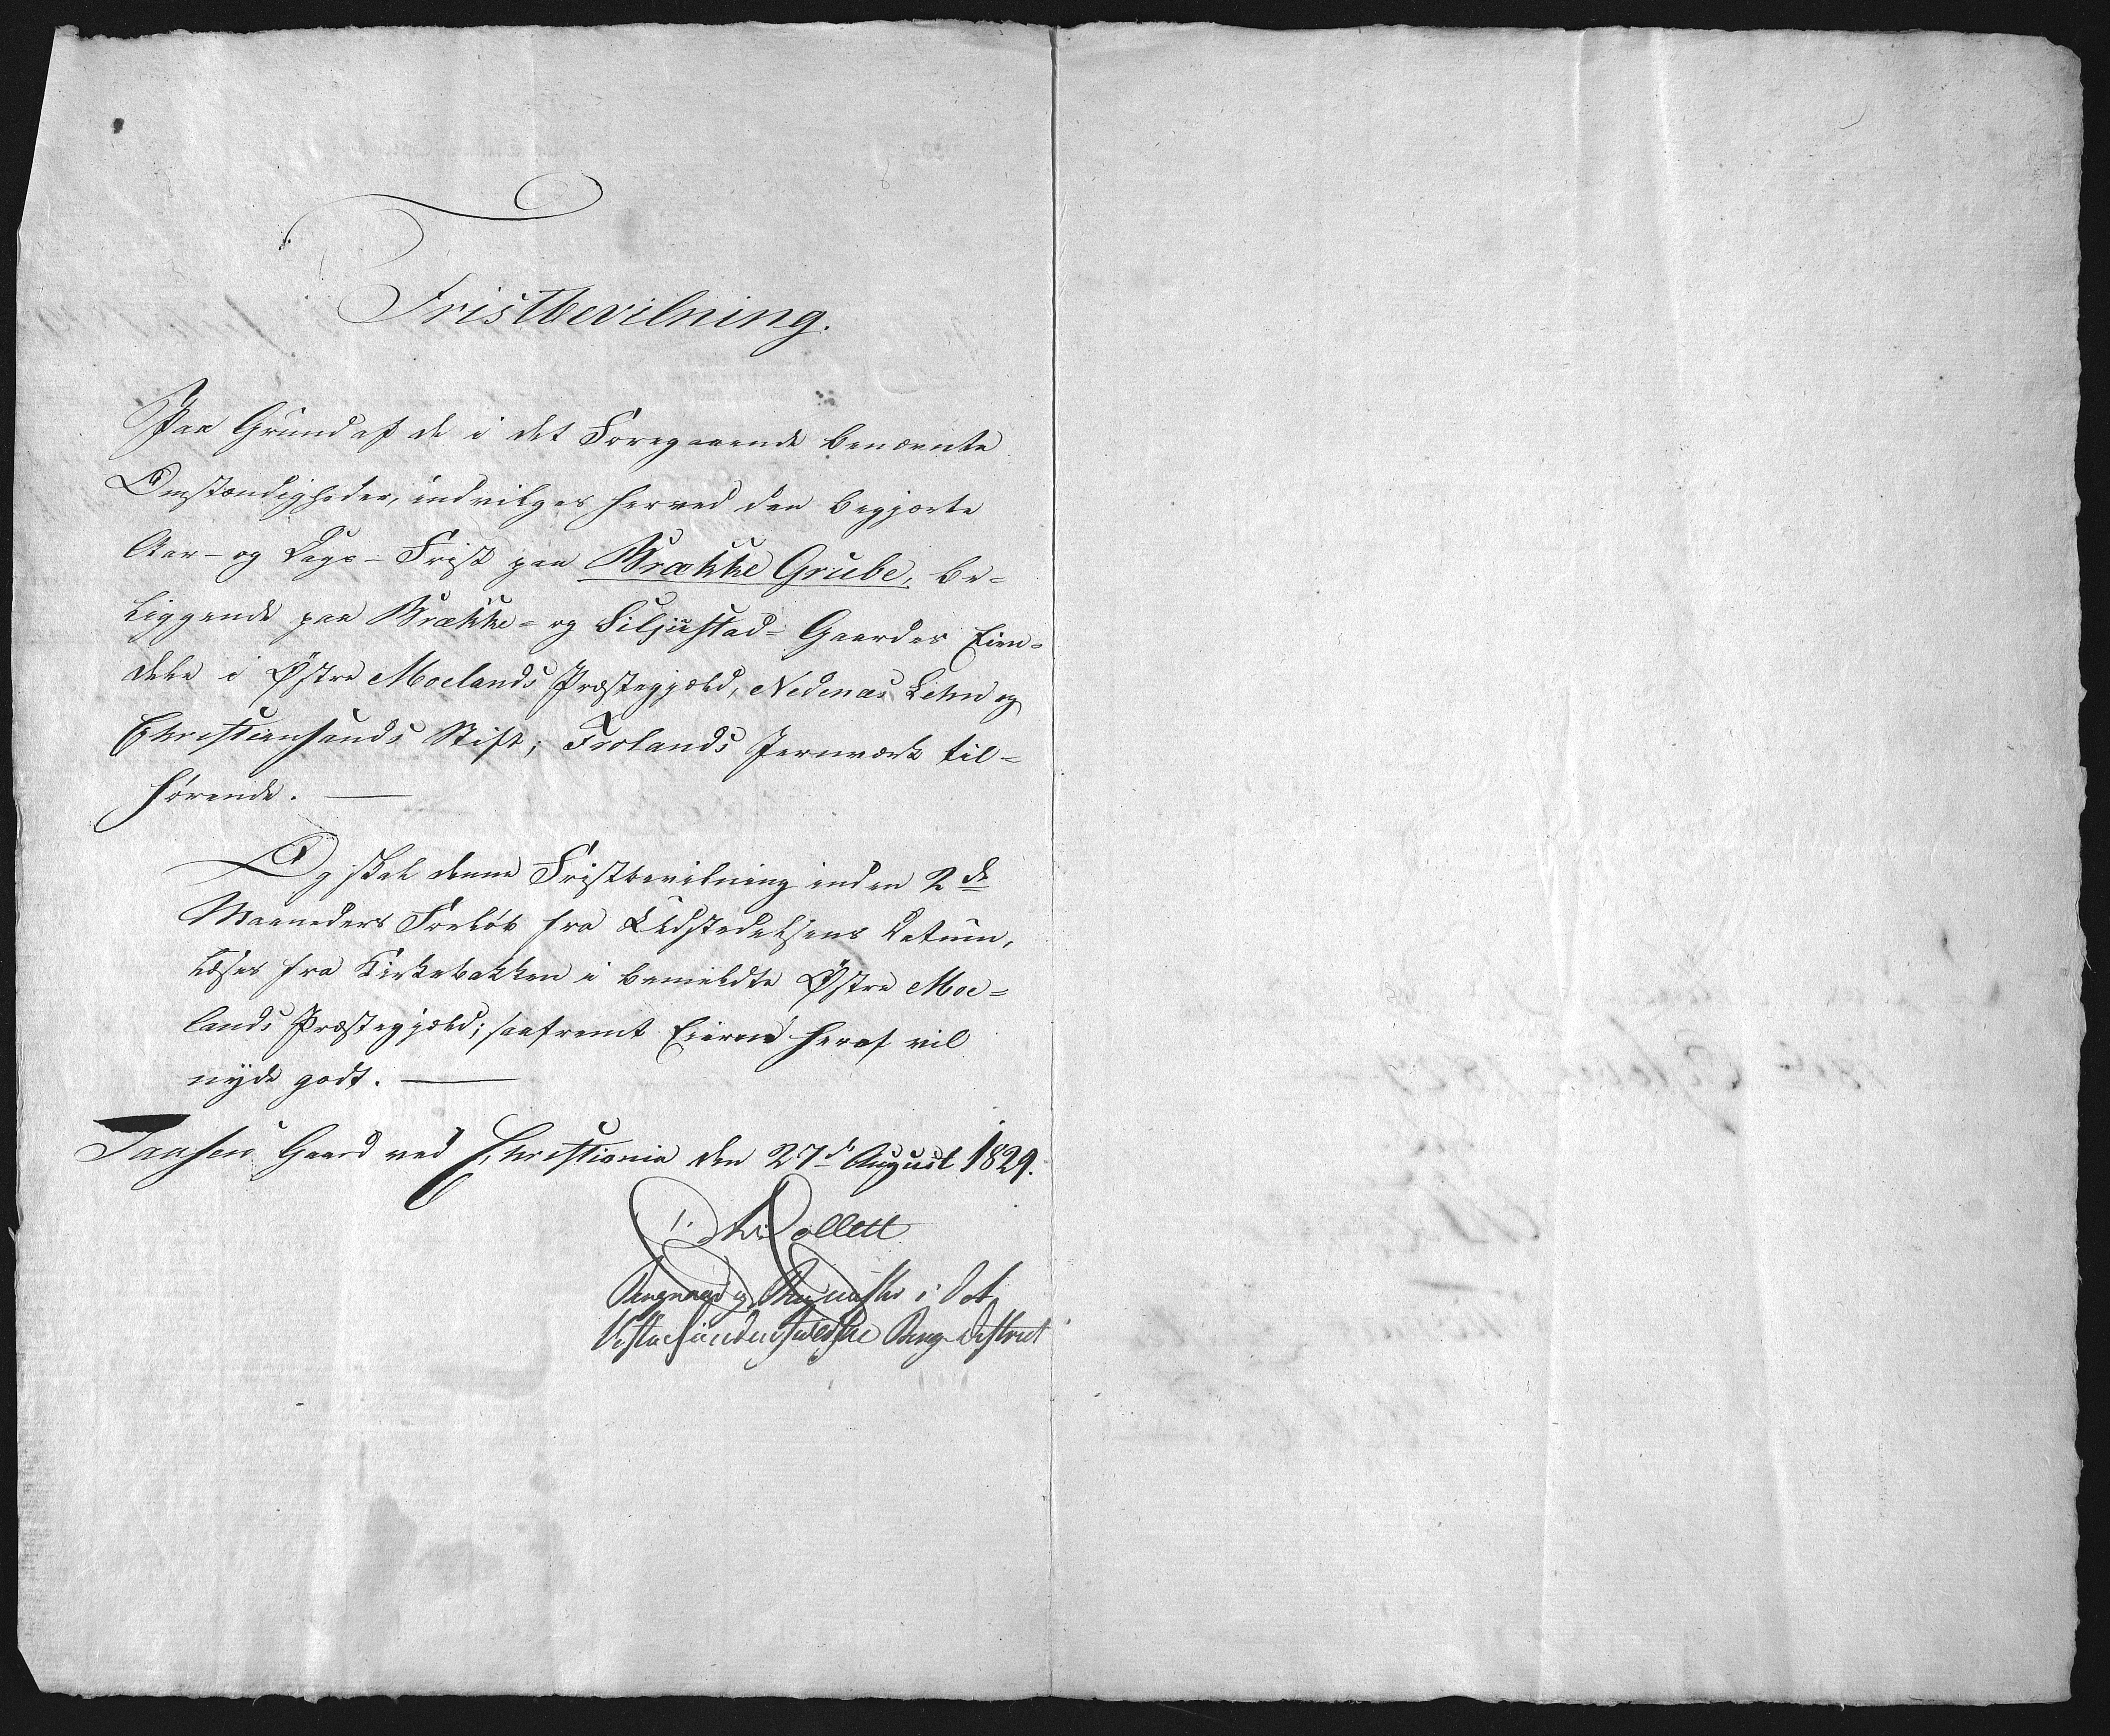 Fristbevilning.
Paa Grund af de i det Foregaaende benævnte
Omstændigheder, indvilges herved den begjærte
Aar- og Dags-Frist paa Brække Grube, be-
liggende paa Brække- og Siljustad-Gaardes Eien-
dele i Østre Moelands Præstegjæld, Nedenæs Lehn og
Christiansands Stift; Frolands Jernværk til-
hørende. —
Og skal denne Fristbevilning inden 2de
Maaneders Forløb fra Udstedelsens Datum,
læses fra Kirkebakken i bemeldte Østre Moe-
lands Præstegjæld; saafremt Eierne heraf vil
nyde godt. —
Taasen Gaard ved Christiania den 27de August 1829.
Collett
Bergraad og Bergmester i det
Vestre Søndenfjeldske Berg-District